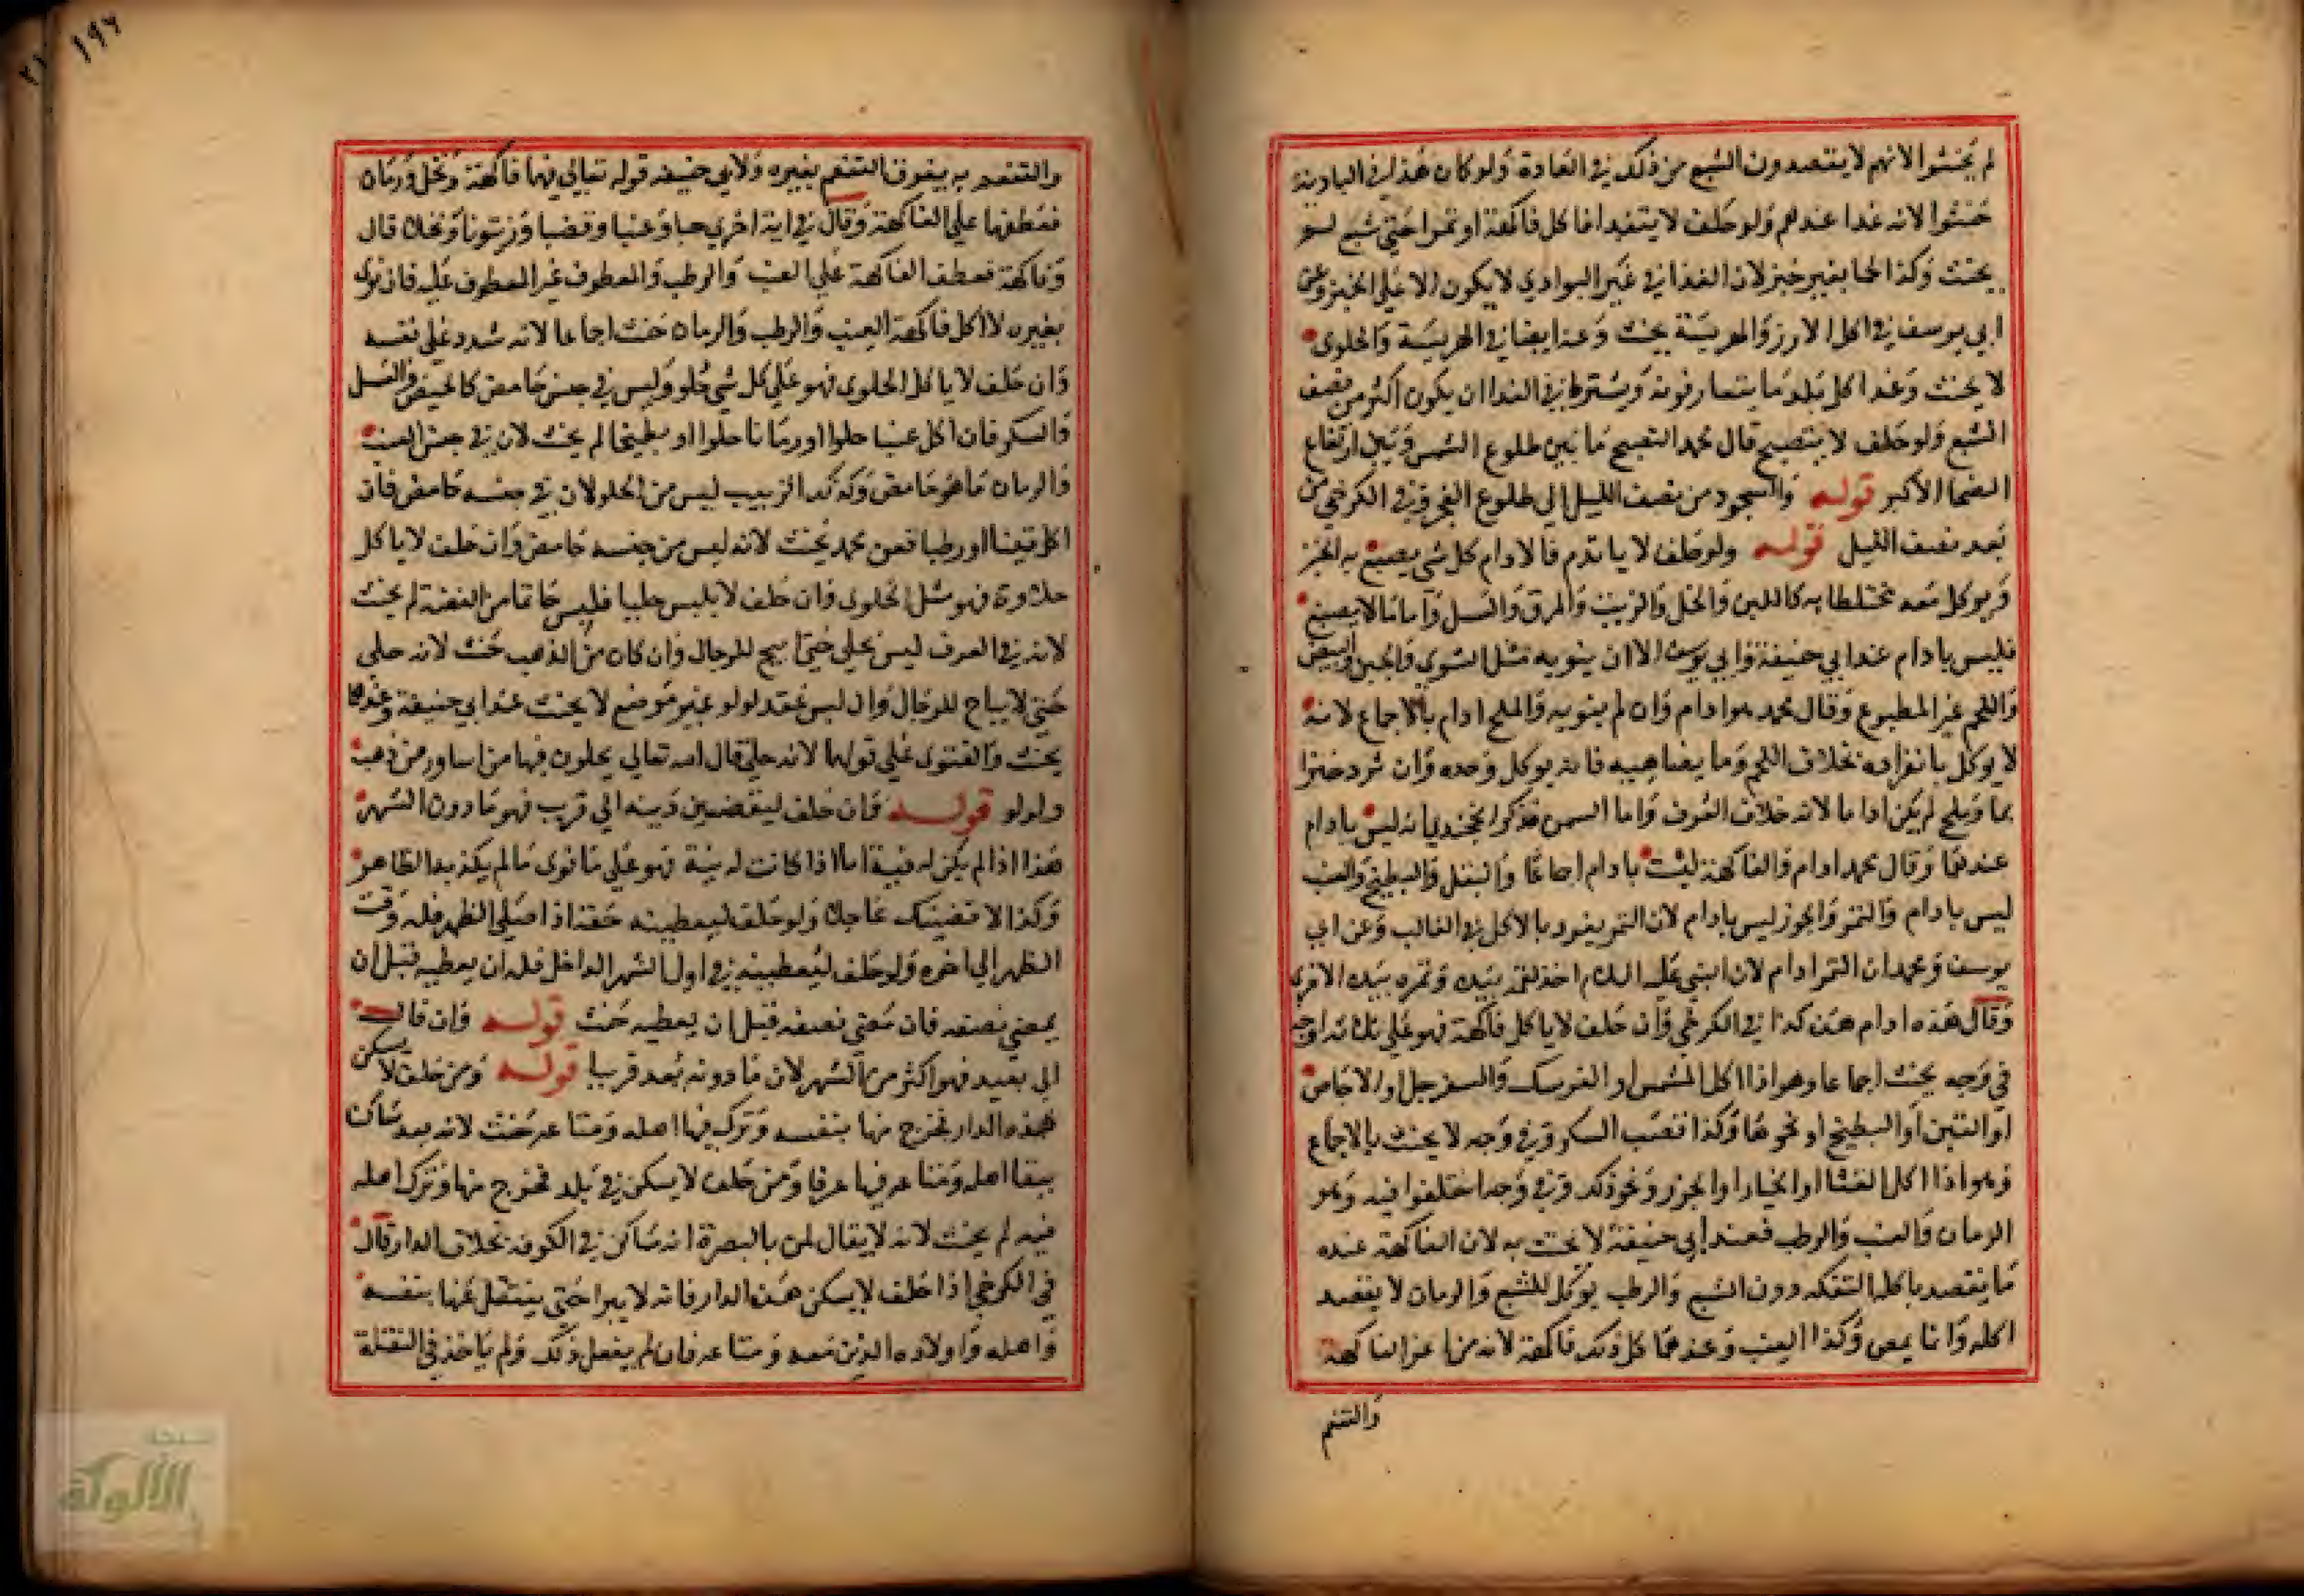 لم يحنثوا لانهم لا يقصدون الشبع من ذلك في العادة ولو كان هذا في البادية
حنثوا لانه غدا عندهم ولو حلف لا يتغدا فاكل فاكهة او تمرا حتي شبع لم
يحنث وكذا لحما بغير خبز لان الغذا في غير البوادي لا يكون الا علي الخبز وعن
ابي يوسف في اكل الارز والهريسة يحنث وعنه ايضا في الهريسة والحلوي
لا يحنث وغدا كل بلد ما يتعارفونه ويشترط في الغدا ان يكون اكثر من نصف
الشبع ولو حلف لا يتصبح قال محمد التصبح ما بين طلوع الشمس وبين ارتفاع
الضحا الاكبر قوله والسحور من نصف الليل الي طلوع الفجر وفي الكرخي من
بعد نصف الليل قوله ولو حلف لا ياتدم فالادام كل شي يصبغ به الخبز
ويوكل معه مختلطا به كاللبن والخل والزيت والمرق والعسل واما ما لا يصبغ
فليس بادام عند ابي حنيفة وابي يوسف الا ان ينويه مثل الشوي والجبن والبيض
واللحم غير المطبوع وقال محمد هو ادام وان لم ينويه والملح ادام بالاجماع لانه
لا يوكل بانفراده بخلاف اللحم وما يضاهيه فانه يوكل وحده وان ثرد خبزا
بما وملح لم يكن اداما لانه خلاف العرف واما السمن فذكر الخجندي انه ليس بادام
عندهما وقال محمد ادام والفاكهة ليست بادام اجماعا والبقل والبطيخ والعنب
ليس بادام والتمر والجوز ليس بادام لان التمر يفرد بالاكل في الغالب وعن ابي
يوسف ومحمد ان التمر ادام لان النبي عليه السلام اخذ لقمة بيده وتمره بيده الاخري
وقال هذه ادام هذه كذا في الكرخي وان حلف لا ياكل فاكهة فهو علي ثلاثة اوجه
في وجه يحنث اجماعا وهو اذا اكل المشمس او الفرسك والسفرجل او الاجاص
او التين او البطيخ او نحوها وكذا قصب السكر وفي وجه لا يحنث بالاجماع
وهو اذا اكل القثا او الخيار او الجزر ونحو ذلك وفي وجه اختلفوا فيه وهو
الرمان والعنب والرطب فعند ابي حنيفة لا يحنث به لان الفاكهة عنده
ما يقصد باكله التفكه دون الشبع والرطب يوكل للشبع والرمان لا يقصد
اكله وانما يمص وكذا العنب وعندهما كل ذلك فاكهة لانه من اعز الفاكهة
والتنعم
والتنعم به يفوق التنعم بغيره ولابي حنيفه قوله تعالي فيهما فاكهة ونخل ورمان
فعطفهما علي الفاكهة وقال في اية اخري حبا وعنبا وقضبا وزيتونا ونخلا قال
وفاكهة فعطف الفاكهة علي العنب والرطب والمعطوف غير المعطوف عليه فان نوي
بغيره لا اكل فاكهة العنب والرطب والرمان حنث اجماعا لانه شدد علي نفسه
وان حلف لا ياكل الحلوي فهو علي كل شي حلو وليس في جنسه حامض كالخبيص والعسل
والسكر فان اكل عنبا حلوا او رمانا حلوا او بطيخا لم يحنث لان في جنس العنب
والرمان ما هو حامض وكذلك الزبيب ليس من الحلو لان في جنسه حامض فان
اكل تينا او رطبا فعن محمد يحنث لانه ليس من جنسه حامض وان حلف لا ياكل
حلاوة فهو مثل الحلوي وان حلف لا يلبس حليا فلبس خاتما من الفضة لم يحنث
لانه في العرف ليس بحلي حتي ابيح للرجال وان كان من الذهب حنث لانه حلي
حتي لا يباح للرجال وان لبس عقد لولو غير مرصع لا يحنث عند ابي حنيفة وعندهما
يحنث والفتوي علي قولهما لانه حلي قال الله تعالي يحلون فيها من اساور من ذهب
ولولو قوله فان حلف ليقضين دينه الي قريب فهو ما دون الشهر
هذا اذا لم يكن له نية اما اذا كانت له نية فهو علي ما نوي ما لم يكذبه الظاهر
وكذا لاقضينك عاجلا ولو حلف ليعطينه حقه اذا صلي الظهر فله وقت
الظهر الي اخره ولو حلف ليعطينه في اول الشهر الداخل فله ان يعطيه قبل ان
يمضي نصفه فان مضي نصفه قبل ان يعطيه حنث قوله وان قال
الي بعيد فهو اكثر من الشهر لان ما دونه يعد قريبا قوله ومن حلف لا يسكن
هذه الدار فخرج منها بنفسه وترك فيها اهله ومتاعه حنث لانه يعد ساكنا
ببقا اهله ومتاعه فيها عرفا ومن حلف لا يسكن في بلد فخرج منها وترك اهله
فيه لم يحنث لانه لا يقال لمن بالبصرة انه ساكن في الكوفه بخلاف الدار قال
في الكرخي اذا حلف لا يسكن هذه الدار فانه لا يبرا حتي ينتقل عنها بنفسه
واهله واولاده الذين معه ومتاعه فان لم يفعل ذلك ولم ياخذ في النقلة
١٩٦
شبكة
الألوكة